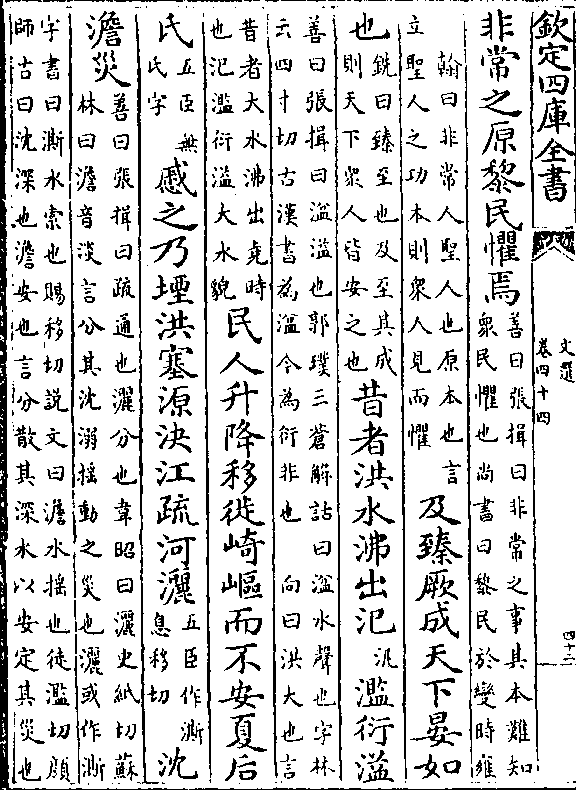 欽定四庫全書
文選
卷四十四
四十二
非常之原黎民懼焉
善曰張揖曰非常之事其本難知
衆民懼也尚書曰黎民於變時雍
翰曰非常人聖人也原本也言
立聖人之功本則衆人見而懼
及臻厥成天下晏如
也
銑曰臻至也及至其成
則天下衆人皆安之也
昔者洪水沸出氾
汎
濫衍溢
善曰張揖曰湓溢也郭璞三蒼解詁曰湓水聲也字林
云四寸切古漢書為湓今為衍非也 向曰洪大也言
昔者大水沸出堯時
也氾濫衍溢大水貌
民人升降移徙崎嶇而不安夏后
氏
五臣無
氏字
慼之乃堙洪塞源決江疏河灑
五臣作澌
息移切
沈
澹災
善曰張揖曰疏通也灑分也韋昭曰灑史紙切蘇
林曰澹音淡言分其沈溺揺動之災也灑或作澌
字書曰澌水索也賜移切説文曰澹水揺也徒濫切顔
師古曰沈深也澹安也言分散其深水以安定其災也